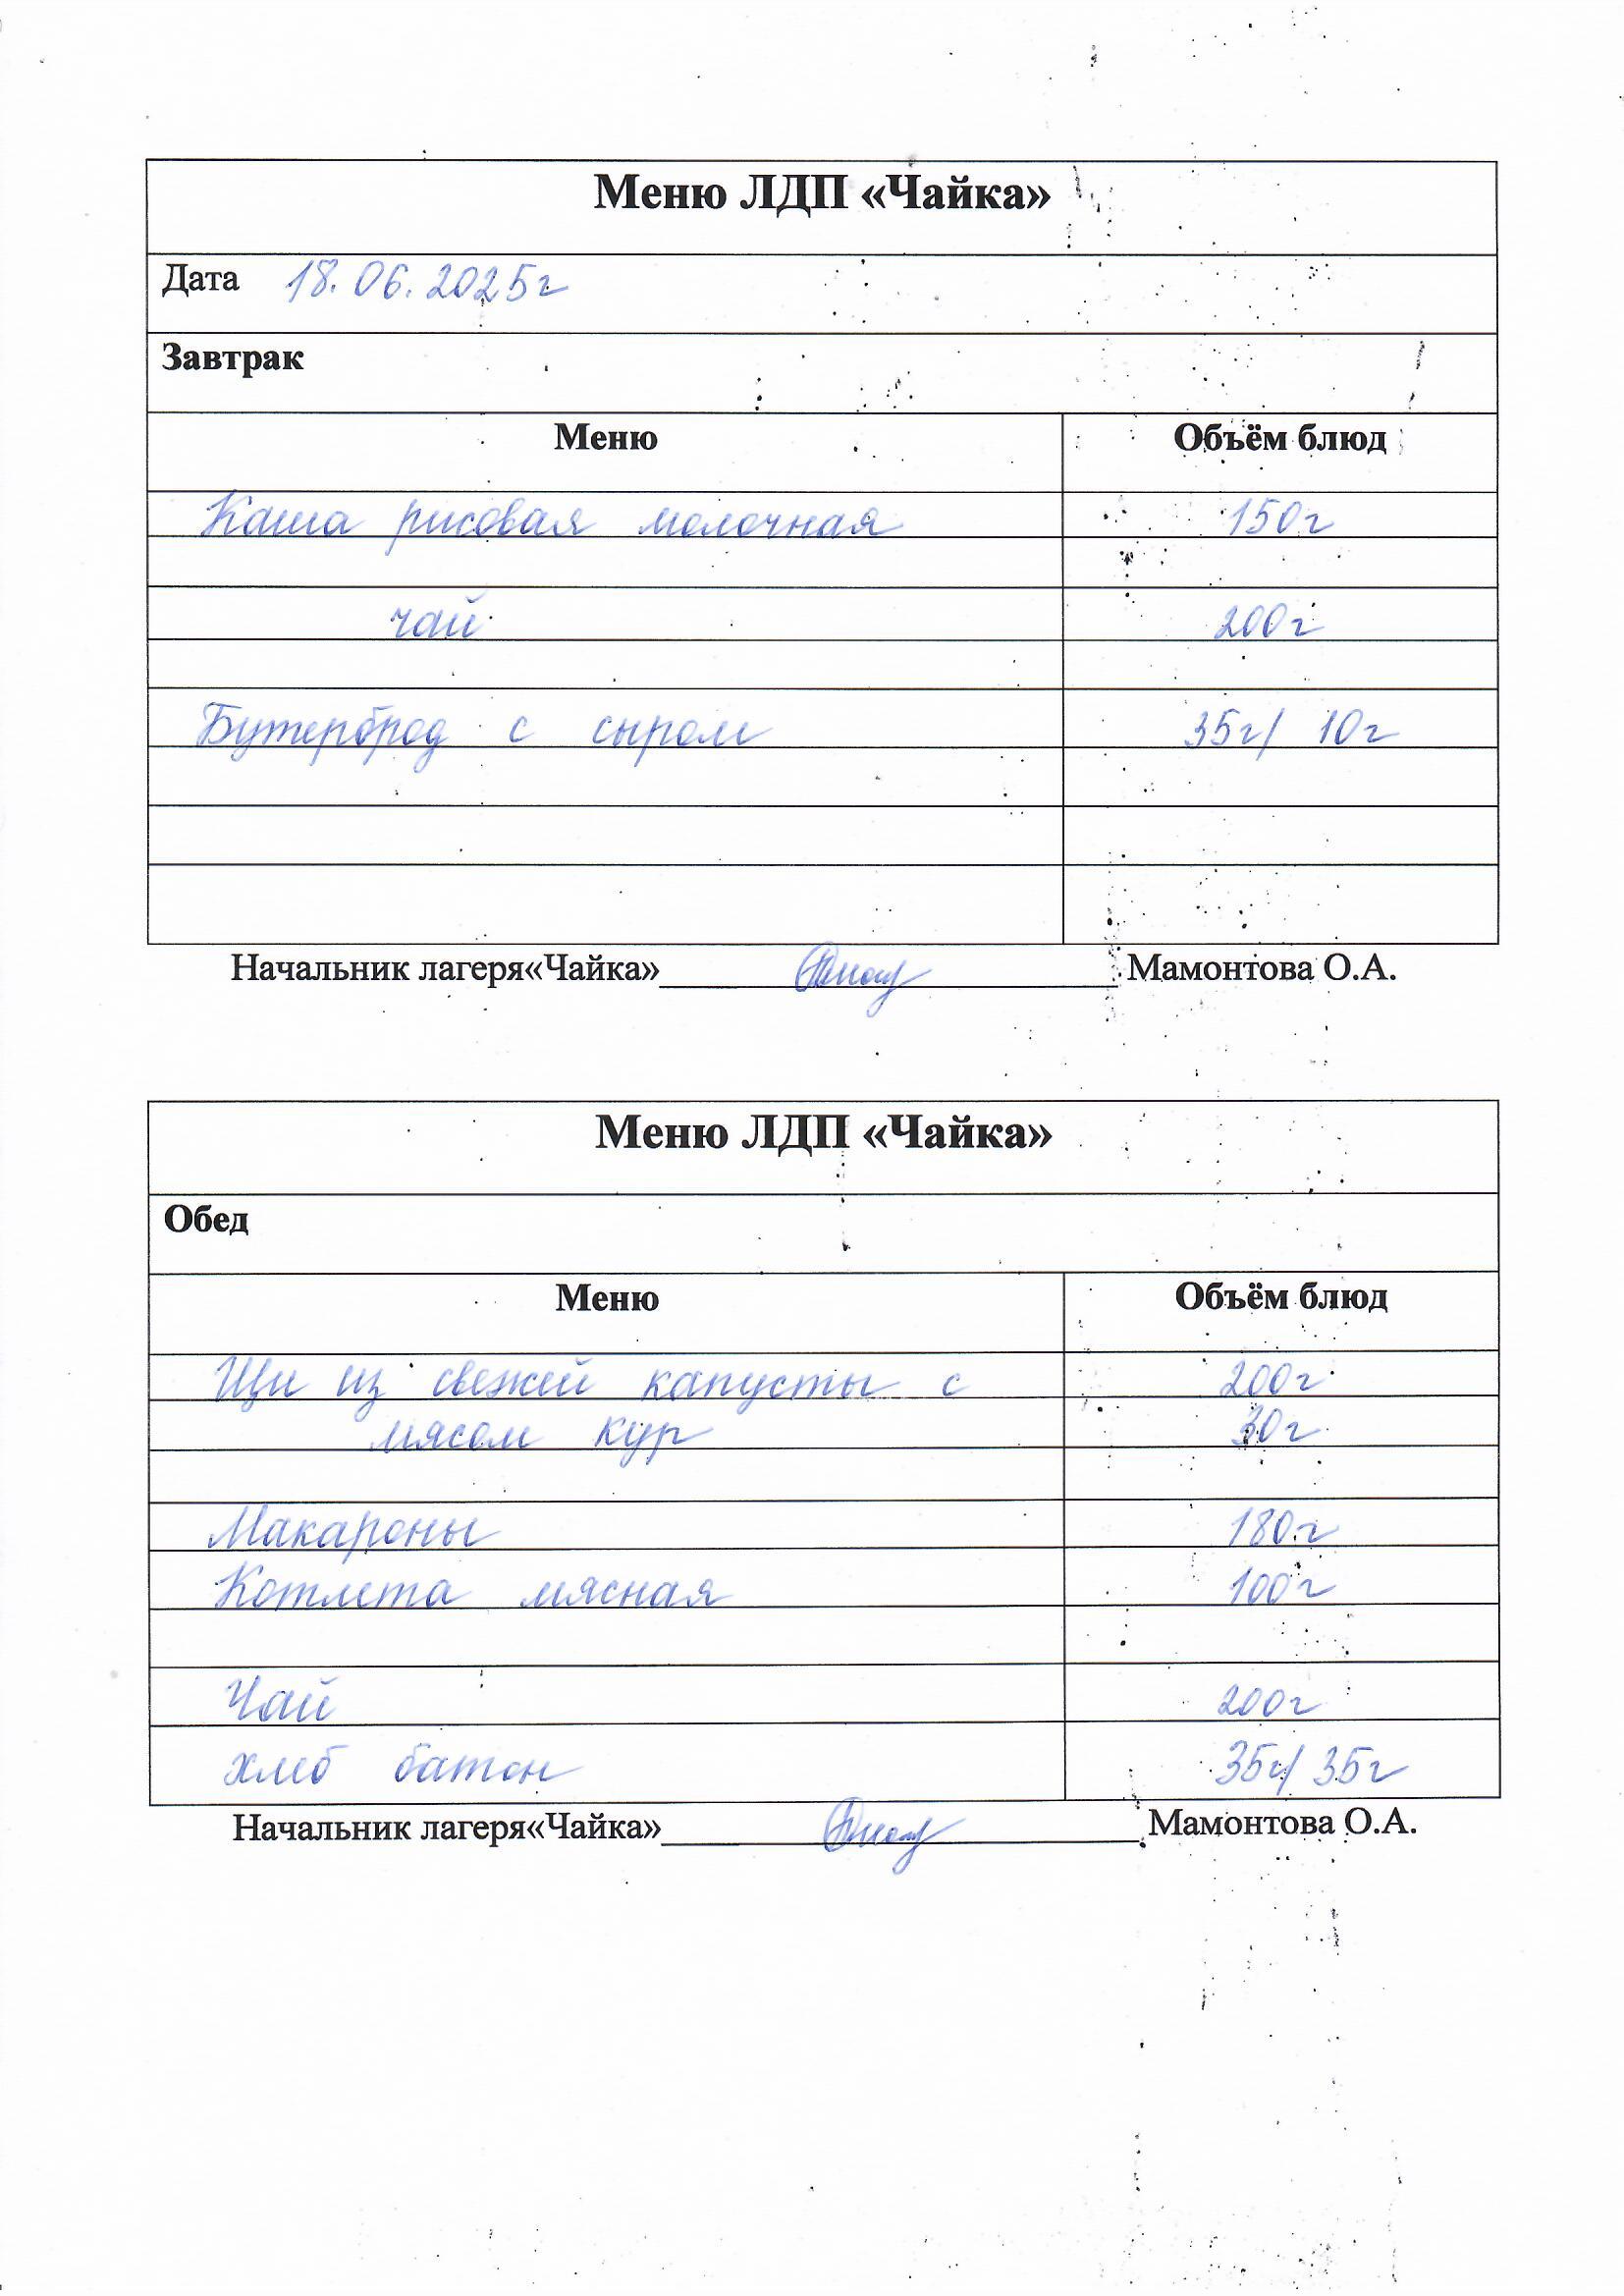 Меню ЛДП «Чайка»
Дата 18.06.2025г
Завтрак
Меню Объём блюд
Каша рисовая молочная 150г
чай 200г
Бутерброд с сыром 35г/ 10г
Начальник лагеря«Чайка» Мамонтова О.А.
Меню ЛДП «Чайка»
Обед
Меню Объём блюд
Щи из свежей капусты с 200г
мясом кур 30г
Макароны 180г
Котлета мясная 100г
Чай 200г
хлеб батон 35г/ 35г
Начальник лагеря«Чайка» Мамонтова О.А.